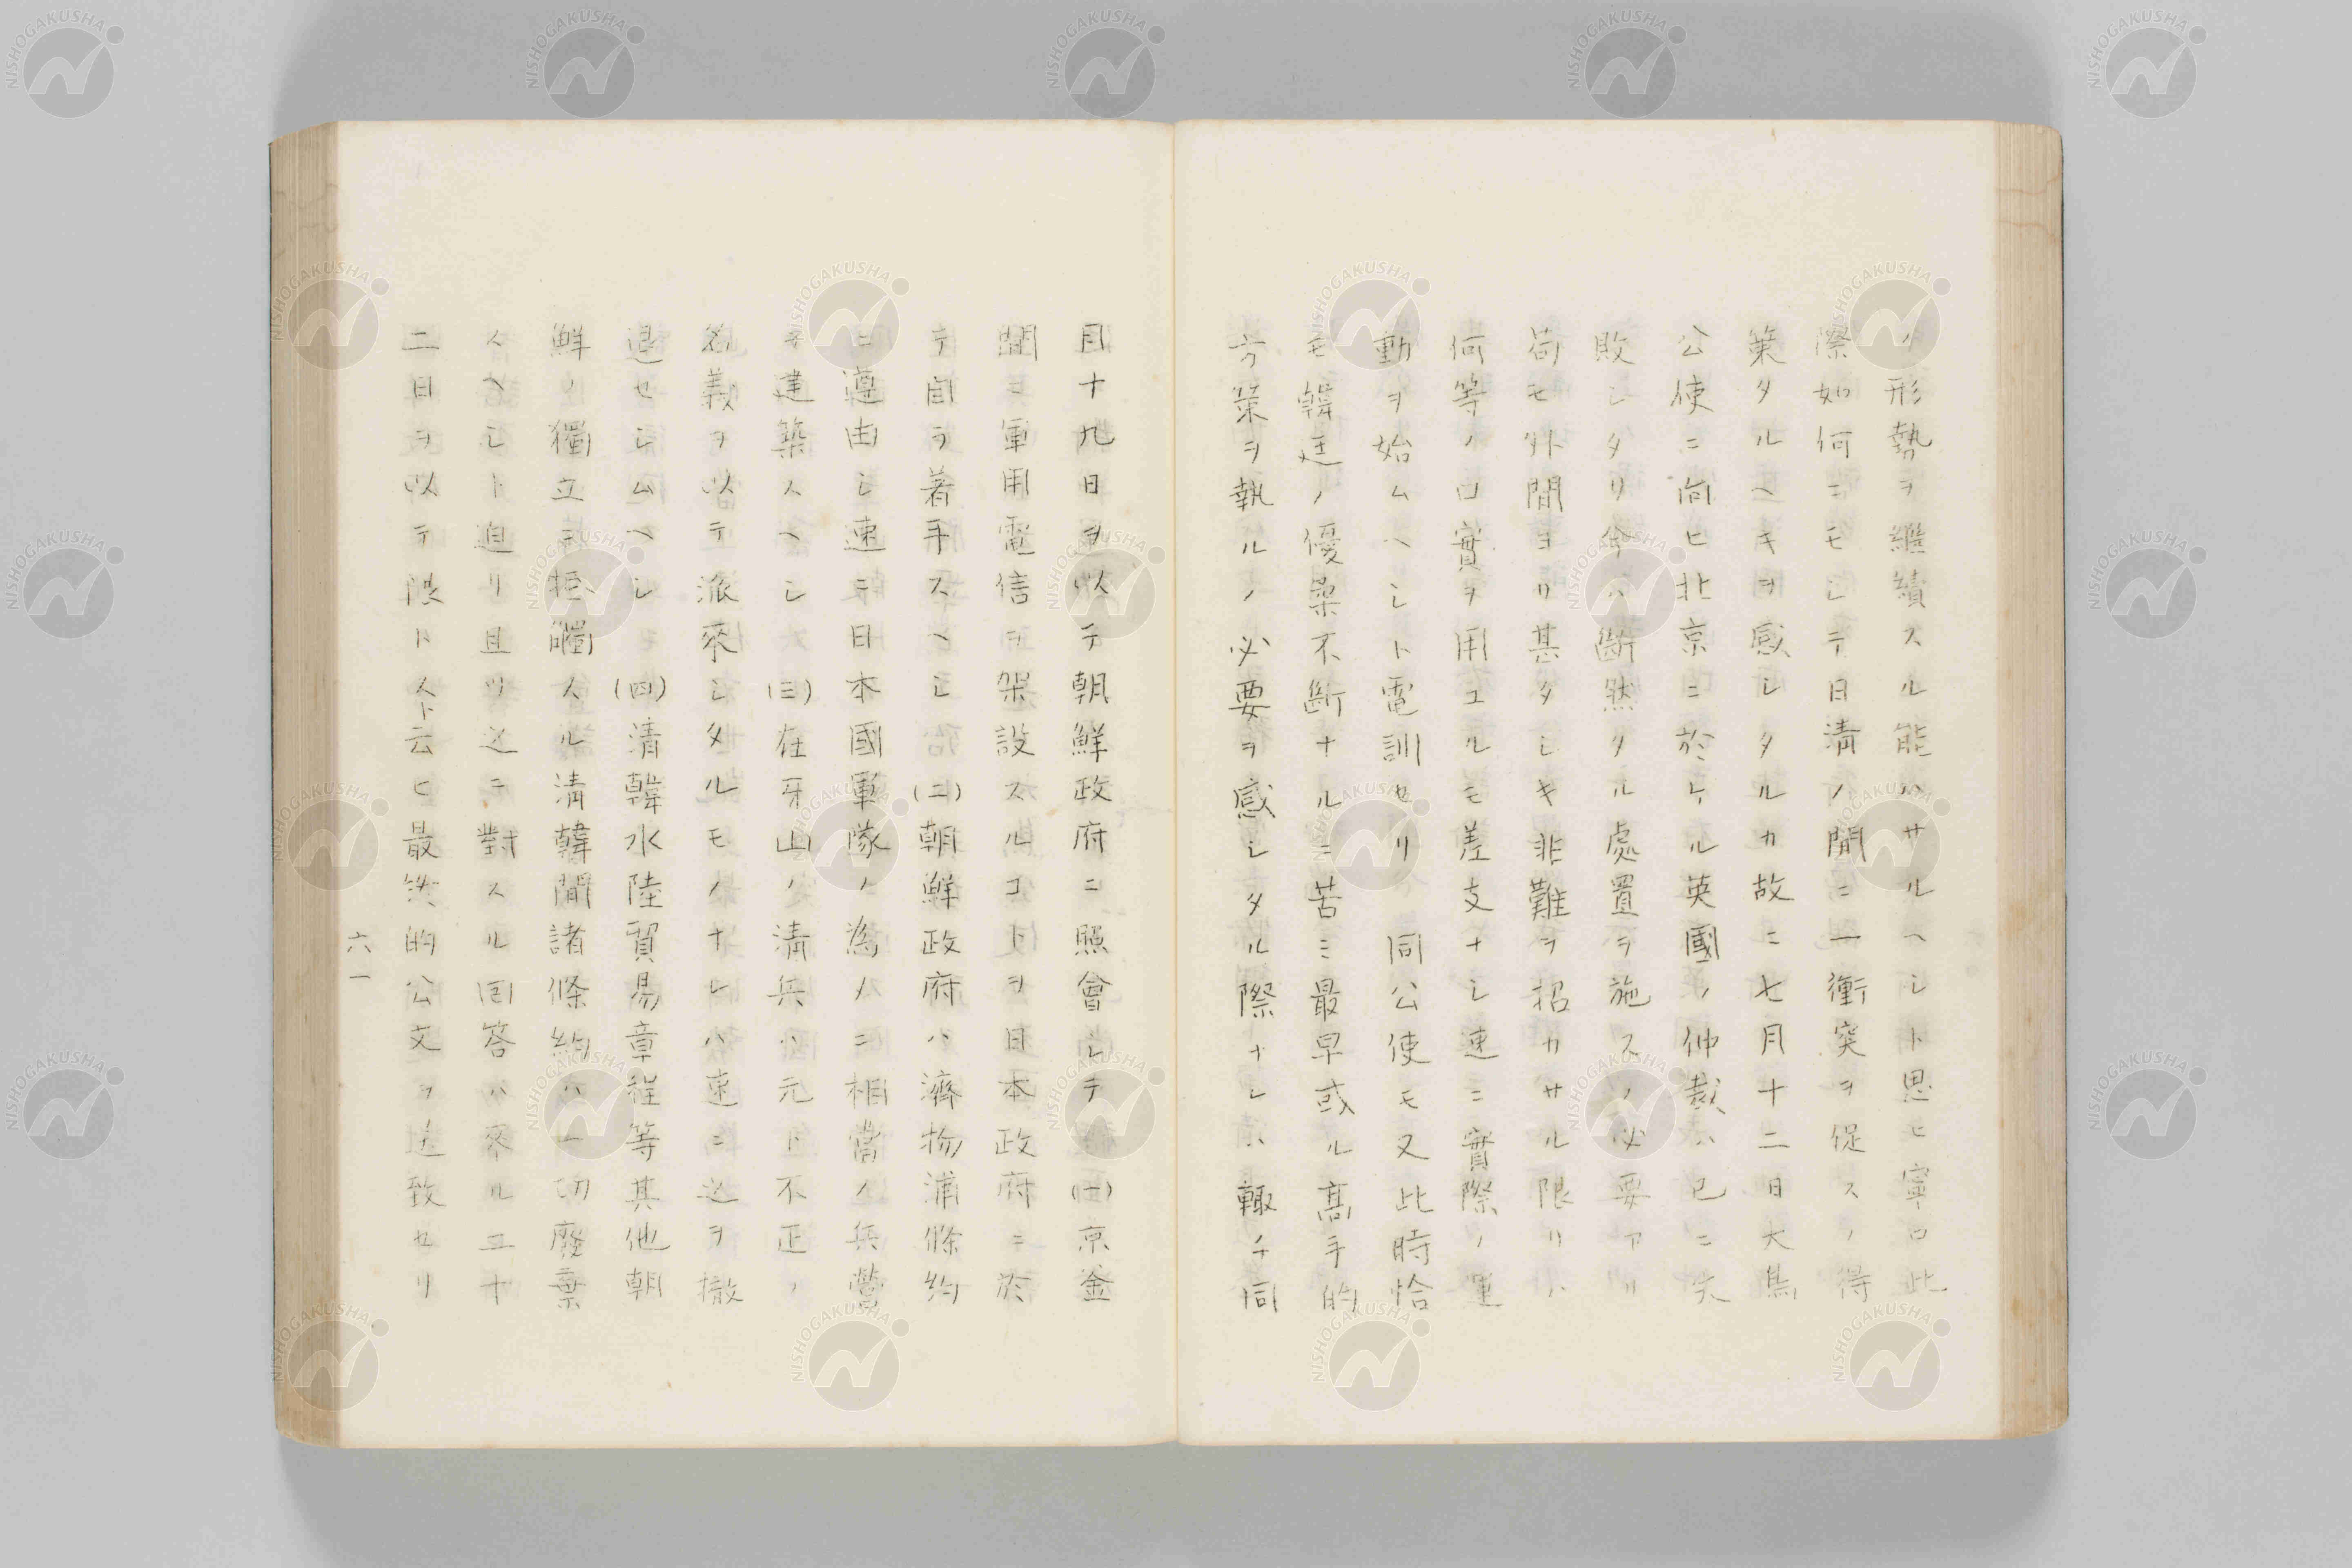 ノ形勢ヲ繼續スル能ハサルヘシト思ヒ寧ロ此
際如何ニモシテ日清ノ間ニ一衝突ヲ促スノ得
策タルヘキヲ感シタルカ故ニ七月十二日大鳥
公使ニ向ヒ北京ニ於ケル英國ノ仲裁ハ已ニ失
敗シタリ今ハ斷然タル處置ヲ施スノ必要アリ
苟モ外間ヨリ甚タシキ非難ヲ招カサル限リハ
何等ノ口實ヲ用ユルモ差支ナシ速ニ實際ノ運
動ヲ始ムヘシト電訓セリ 同公使モ又此時恰
モ韓廷ノ優柔不斷ナルニ苦ミ最早或ル髙手的
方策ヲ執ルノ必要ヲ感シタル際ナレハ輙チ同
月十九日ヲ以テ朝鮮政府ニ照會シテ(一)京釜
間ニ軍用電信ヲ架設スルコトヲ日本政府ニ於
テ自ラ着手スヘシ(二)朝鮮政府ハ濟物浦條約
ニ遵由シ速ニ日本國軍隊ノ為メニ相當ノ兵營
ヲ建築スヘシ(三)在牙山ノ清兵ハ元ト不正ノ
名義ヲ以テ派來シタルモノナレハ速ニ之ヲ撤
退セシムヘシ(四)清韓水陸貿易章程等其他朝
鮮ノ獨立ニ抵觸スル清韓間諸條約ハ一切廢棄
スヘシト迫リ且ツ之ニ對スル囘答ハ來ル二十
二日ヲ以テ限トスト云ヒ最後的公文ヲ送致セリ
六一
NISHOGAKUSHA